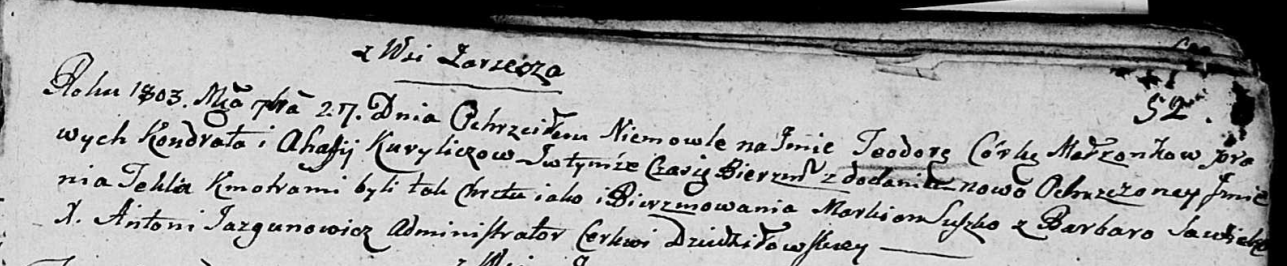 z Wsi Zarzecza
52.
Roku 1803. Mca 7bra 27. Dnia Ochrzciłem Niemowle na Imie Teodorę Córkę Małżonkow pra
wych Kondrata i Ahafij Kuryliczow I w tymże Czasię Bierzm z dodaniem nowo Ochrzczoney Imie
nia Tekla Kmotrami byli tak Chrztu iako i Bierzmowania Markian Suszko z Barbarą
X. Antoni Jazgunowicz Administrator Cerkwi Dziedziłowskiey